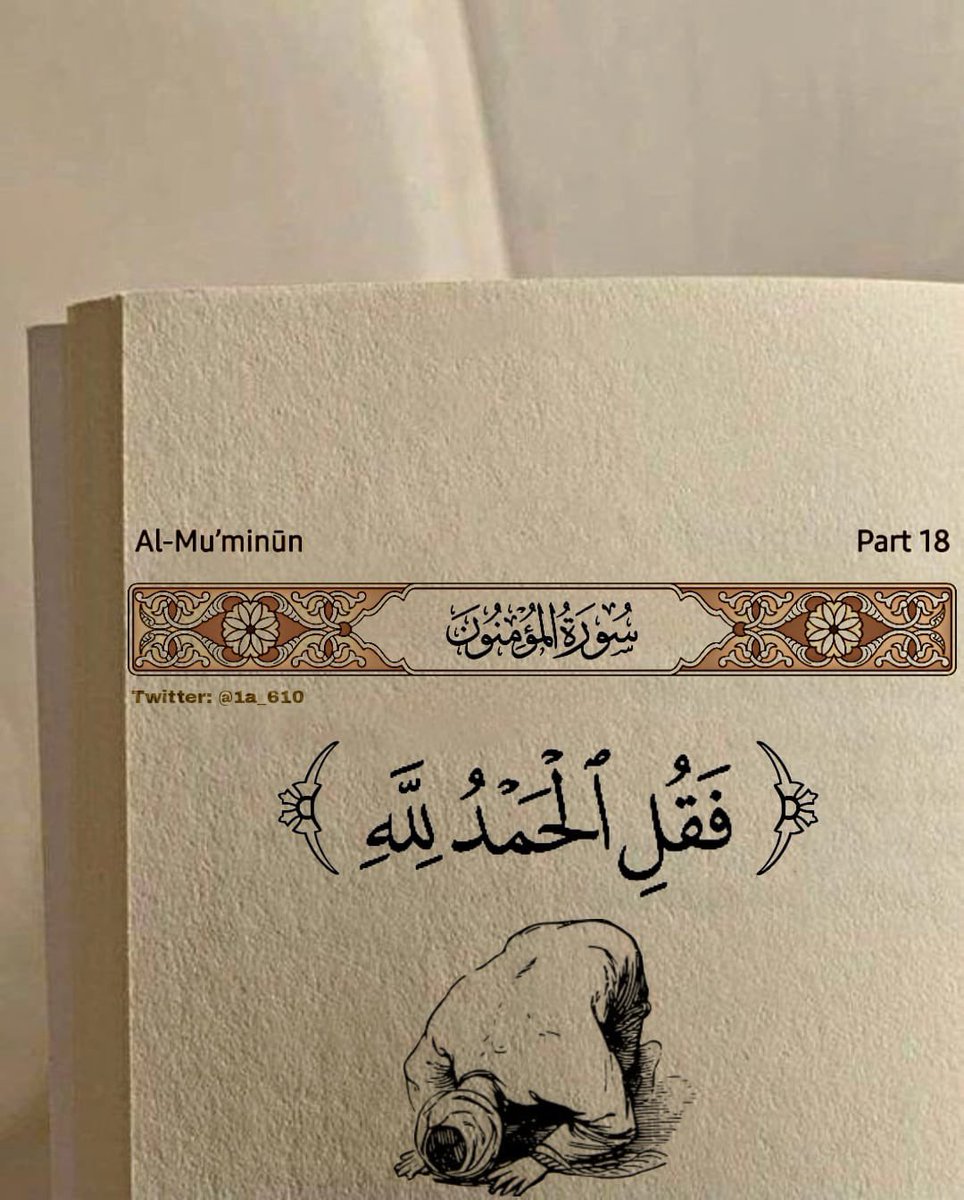 Al-Mu’minūn Part 18
سُورَةُ المُؤْمِنُونَ
Twitter: @1a_610
﴿فَقُلِ ٱلْحَمْدُ لِلَّهِ﴾